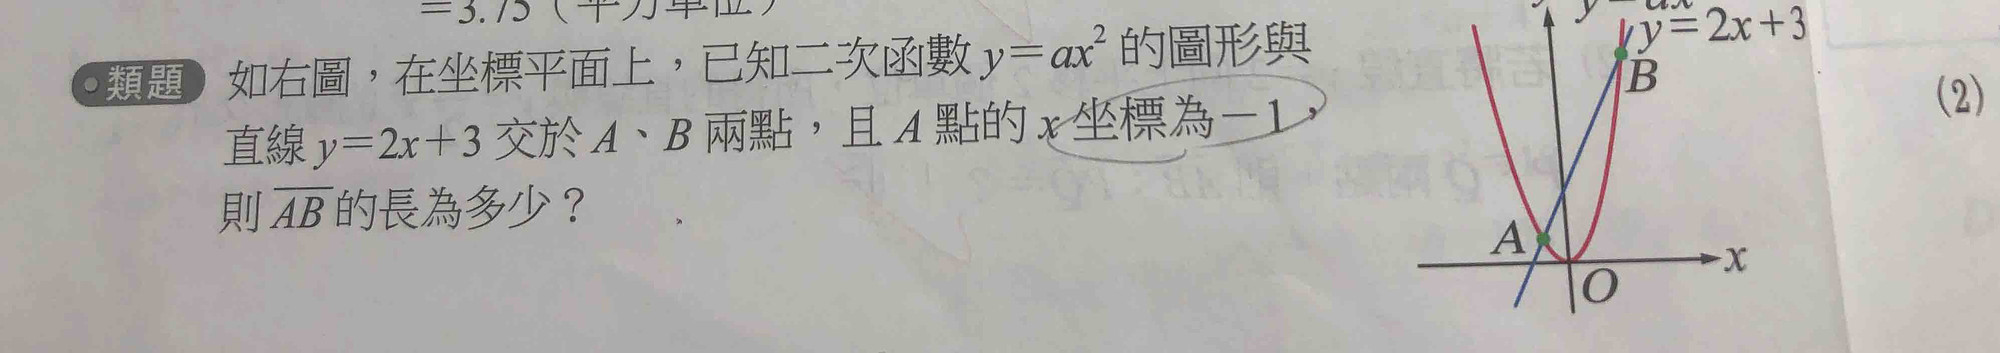 =3.75（平方單位）
類題 如右圖，在坐標平面上，已知二次函數 y=ax² 的圖形與
直線 y=2x+3 交於 A、B 兩點，且 A 點的 x 坐標為-1，
則 AB 的長為多少？
y=ax²
y=2x+3
B
A
x
O
(2)